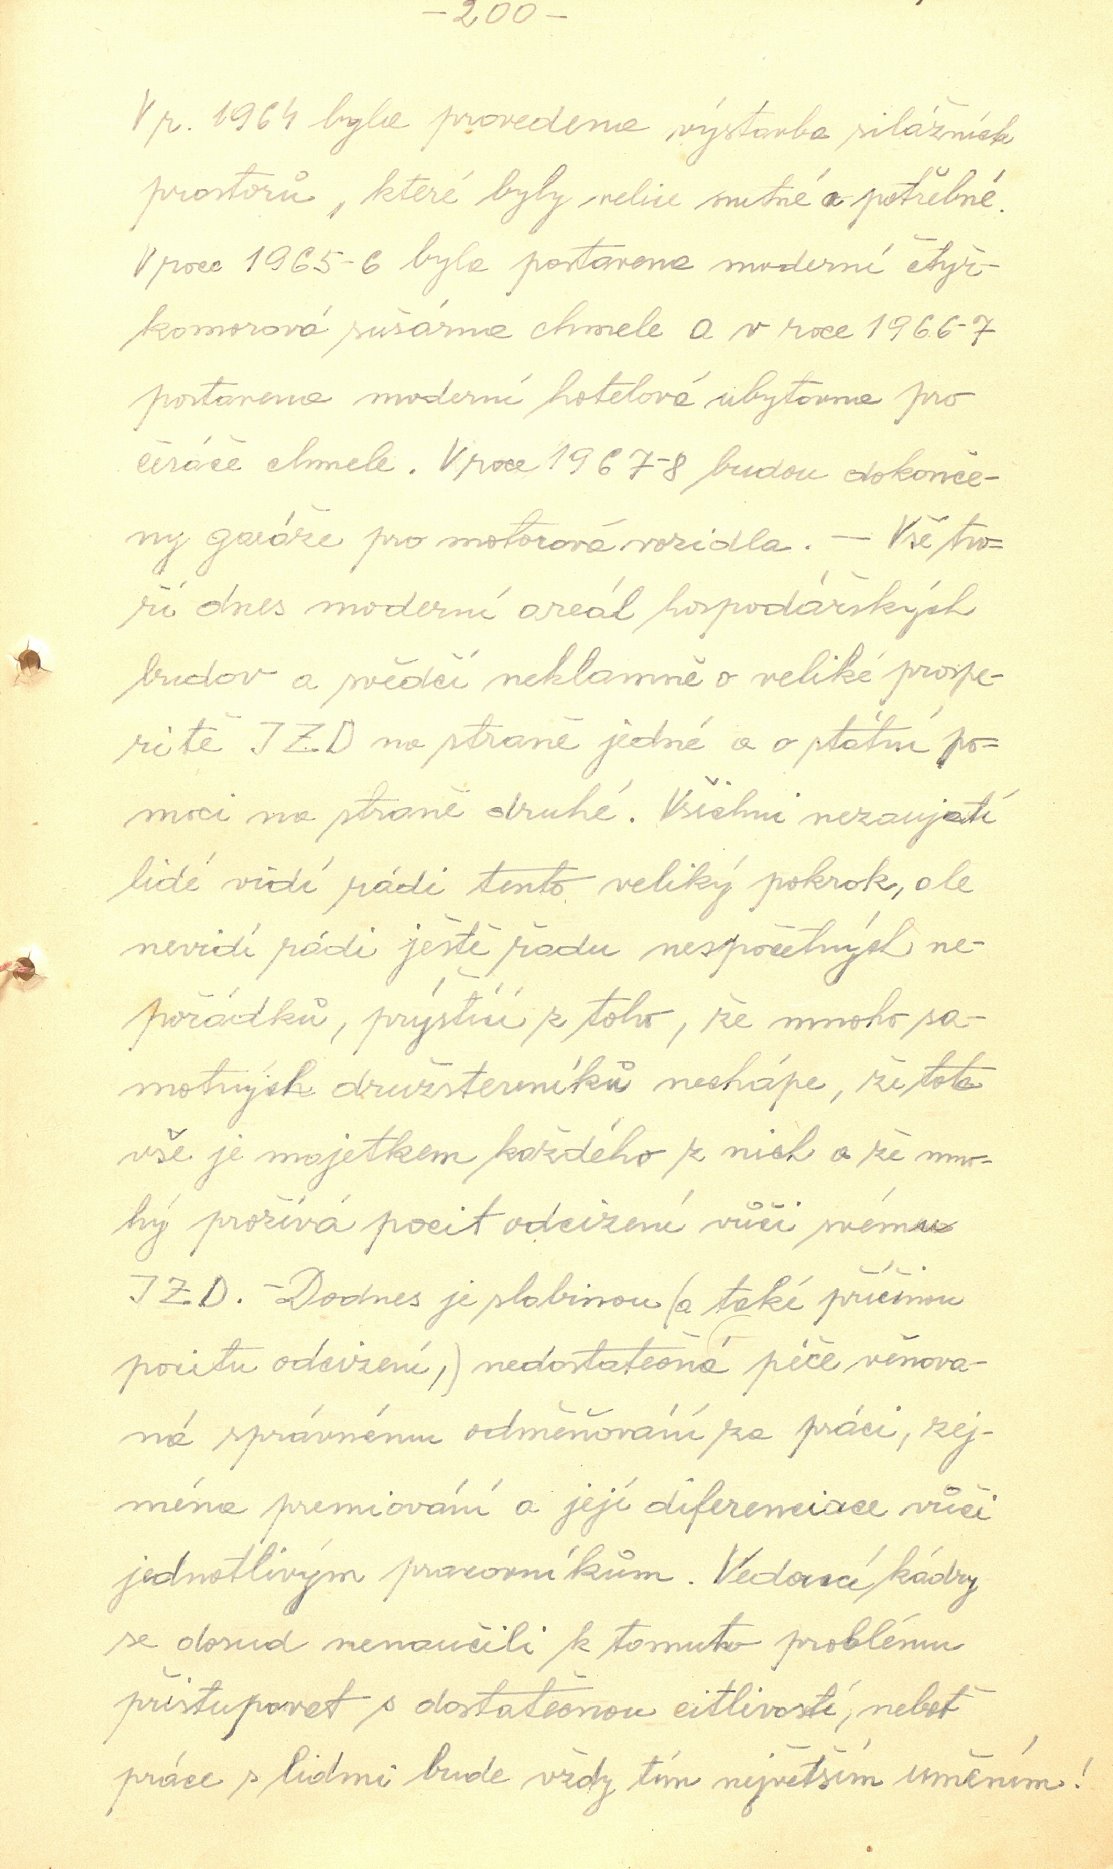 -200-
V r. 1964 byla provedena výstavba silážních
prostorů, které byly velice nutné a potřebné.
V roce 1965-6 byla postavena moderní čtyř-
komorová sušárna chmele a v roce 1966-7
postavena moderní hotelová ubytovna pro
česáče chmele. V roce 1967-8 budou dokonče-
ny garáže pro motorová vozidla. — Vše tvo=
ří dnes moderní areál hospodářských
budov a svědčí neklamně o veliké prospe-
ritě JZD na straně jedné a o státní po=
moci na straně druhé. Všichni nezaujatí
lidé vidí rádi tento veliký pokrok, ale
nevidí rádi ještě řadu nespočetných ne-
pořádků, prýštící z toho, že mnoho sa-
motných družstevníků nechápe, že toto
vše je majetkem každého z nich a že mno-
hý prožívá pocit odcizení vůči svému
JZD. - Dodnes je slabinou (a také příčinou
pocitu odcizení,) nedostatečná péče věnova-
ná správnému odměňování za práci, zej-
ména premiování a její diferenciace vůči
jednotlivým pracovníkům. Vedoucí kádry
se dosud nenaučili k tomuto problému
přistupovat s dostatečnou citlivostí, neboť
práce s lidmi bude vždy tím největším uměním!